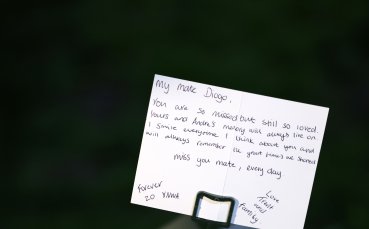 My mate Diogo,
You are so missed but still so loved.
Yours and Andre's memory will always live on
I smile everytime I think about you and
will always remember the great times we shared
Miss you mate, every day
Forever
20 YNWA
Love
Trent
and
family